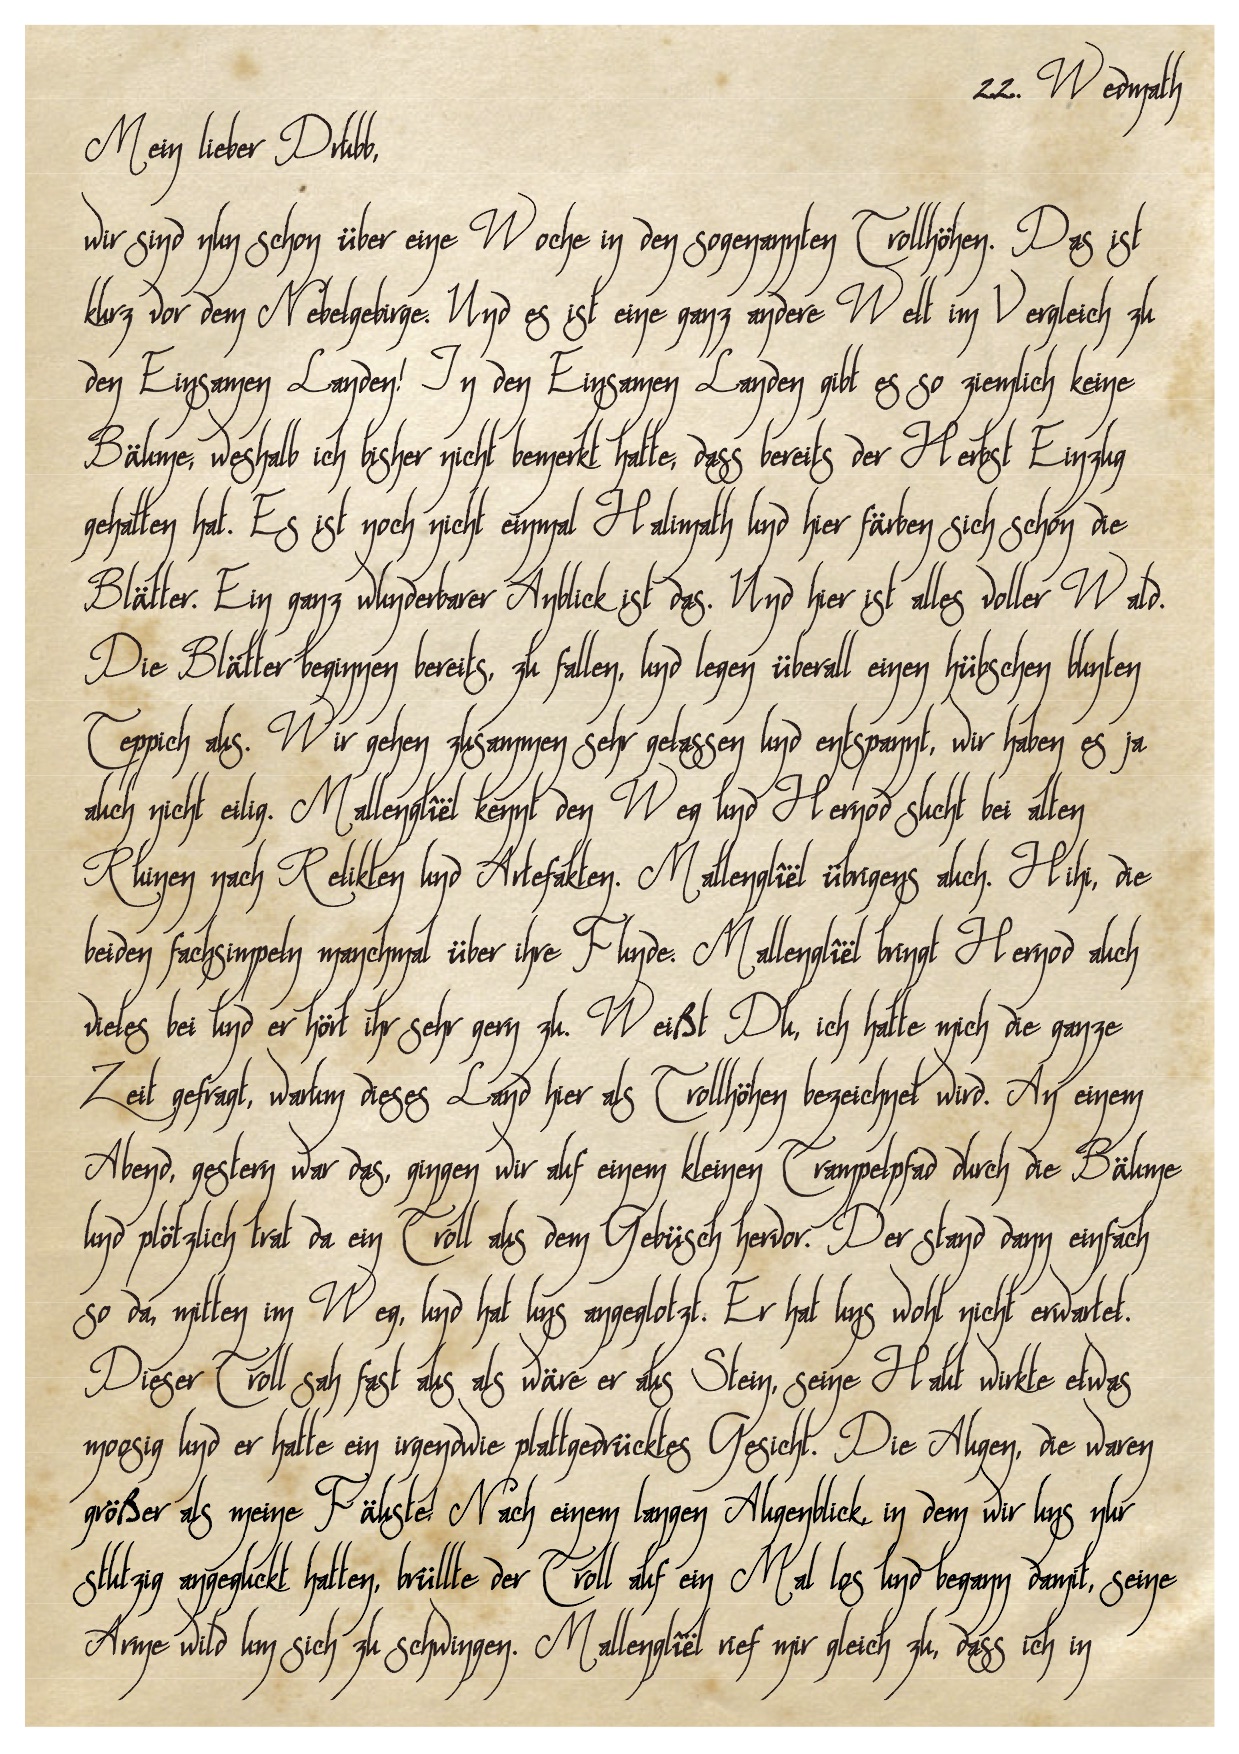 22. Wedmath
Mein lieber Drubb,
wir sind nun schon über eine Woche in den sogenannten Trollhöhen. Das ist
kurz vor dem Nebelgebirge. Und es ist eine ganz andere Welt im Vergleich zu
den Einsamen Landen! In den Einsamen Landen gibt es so ziemlich keine
Bäume, weshalb ich bisher nicht bemerkt hatte, dass bereits der Herbst Einzug
gehalten hat. Es ist noch nicht einmal Halimath und hier färben sich schon die
Blätter. Ein ganz wunderbarer Anblick ist das. Und hier ist alles voller Wald.
Die Blätter beginnen bereits, zu fallen, und legen überall einen hübschen bunten
Teppich aus. Wir gehen zusammen sehr gelassen und entspannt, wir haben es ja
auch nicht eilig. Mallenglîël kennt den Weg und Hernod sucht bei alten
Ruinen nach Relikten und Artefakten. Mallenglîël übrigens auch. Hihi, die
beiden fachsimpeln manchmal über ihre Funde. Mallenglîël bringt Hernod auch
vieles bei und er hört ihr sehr gern zu. Weißt Du, ich hatte mich die ganze
Zeit gefragt, warum dieses Land hier als Trollhöhen bezeichnet wird. An einem
Abend, gestern war das, gingen wir auf einem kleinen Trampelpfad durch die Bäume
und plötzlich trat da ein Troll aus dem Gebüsch hervor. Der stand dann einfach
so da, mitten im Weg, und hat uns angeglotzt. Er hat uns wohl nicht erwartet.
Dieser Troll sah fast aus als wäre er aus Stein, seine Haut wirkte etwas
moosig und er hatte ein irgendwie plattgedrücktes Gesicht. Die Augen, die waren
größer als meine Fäuste! Nach einem langen Augenblick, in dem wir uns nur
stutzig angeguckt hatten, brüllte der Troll auf ein Mal los und begann damit, seine
Arme wild um sich zu schwingen. Mallenglîël rief mir gleich zu, dass ich in